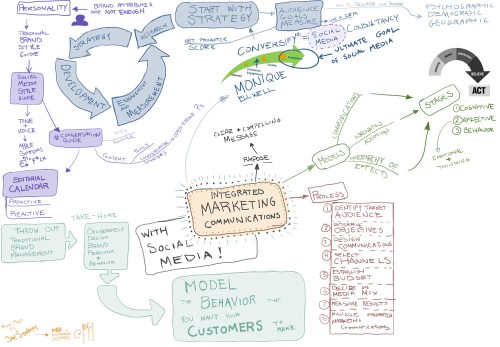 PERSONALITY
BRAND ATTRIBUTES
ARE NOT ENOUGH
TRADITIONAL
BRAND
STYLE
GUIDE
SOCIAL
MEDIA
STYLE
GUIDE
TONE
VOICE
CONVERSATION
GUIDE
EDITORIAL
CALENDAR
PROACTIVE
REACTIVE
STRATEGY
RESEARCH
DEVELOPMENT
MEASUREMENT
START WITH
STRATEGY
NET PROMOTER
SCORE
AUDIENCE
GOALS
MEASURE
CONVERSE
SOCIAL
MEDIA
CONSISTANCY
ULTIMATE GOAL
OF SOCIAL MEDIA
MONIQUE
ELWELL
PSYCHOGRAPHIC
DEMOGRAPHIC
GEOGRAPHIC
BELIEVE
ACT
STAGES
① COGNITIVE
② AFFECTIVE
③ BEHAVIOR
COMMUNICATIONS
HIERARCHY OF
EFFECTS
MODELS
CLEAR + COMPELLING
MESSAGE
PURPOSE
INTEGRATED
MARKETING
COMMUNICATIONS
WITH
SOCIAL
MEDIA!
PROCESS
① IDENTIFY TARGET
AUDIENCE
② DETERMINE
OBJECTIVES
③ DESIGN
COMMUNICATIONS
④ SELECT
CHANNELS
⑤ ESTABLISH
BUDGET
⑥ DECIDE ON
MEDIA MIX
⑦ MEASURE RESULTS
⑧ MANAGE INTEGRATED
MARKETING
COMMUNICATIONS
THROW OUT
TRADITIONAL
BRAND
MANAGEMENT
TAKE-HOME
DELIBERATELY
DESIGN
BRAND
PERSONA
+
BEHAVIOR
MODEL
THE BEHAVIOR THAT
YOU WANT YOUR
CUSTOMERS TO
MAKE